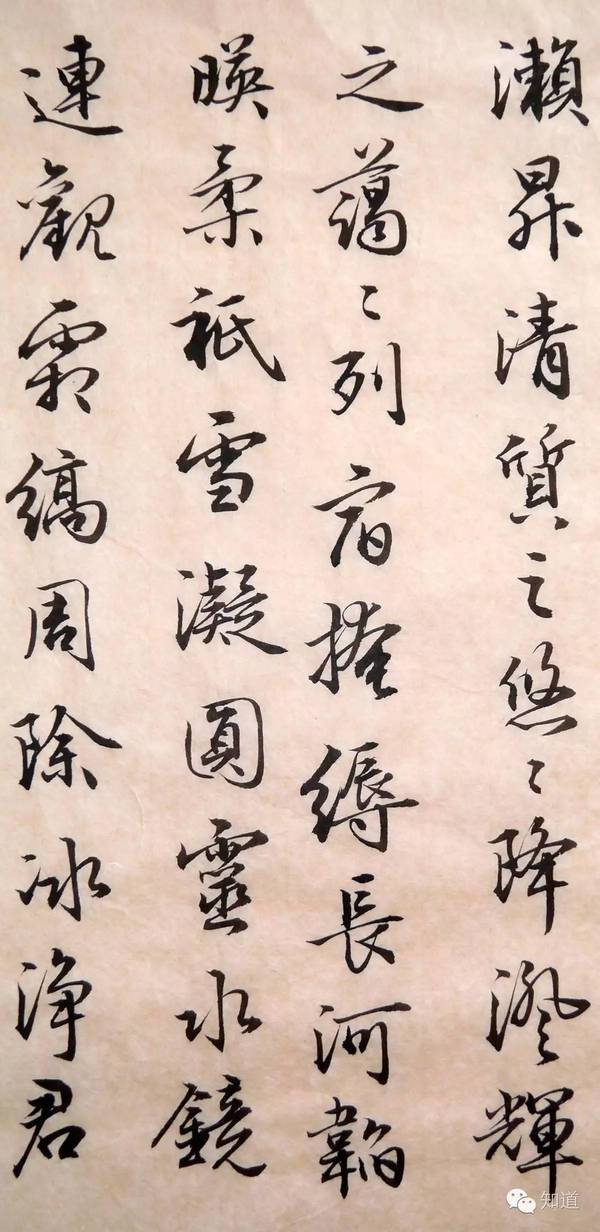 瀨昇清質之悠〻降澄輝
之藹〻列宿掩縟長河韜
暎柔祇雪凝圓靈水鏡
連觀霜縞周除冰淨君
知道